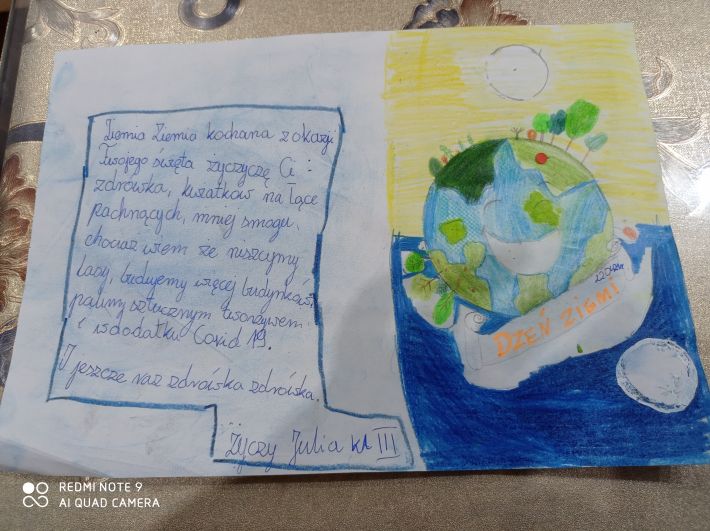 Ziemia Ziemia kochana z okazji
Twojego święta życzyczę Ci :
zdrówka, kwiatków na łące
pachnących, mniej smogu,
chociaż wiem że niszczymy
lasy, budujemy więcej budynków,
palimy sztucznym tworzywem
i w dodatku Covid 19.
I jeszcze raz zdrówska zdrówska.
Życzy Julia kl III
DZEŃ ZIEMI
REDMI NOTE 9
AI QUAD CAMERA